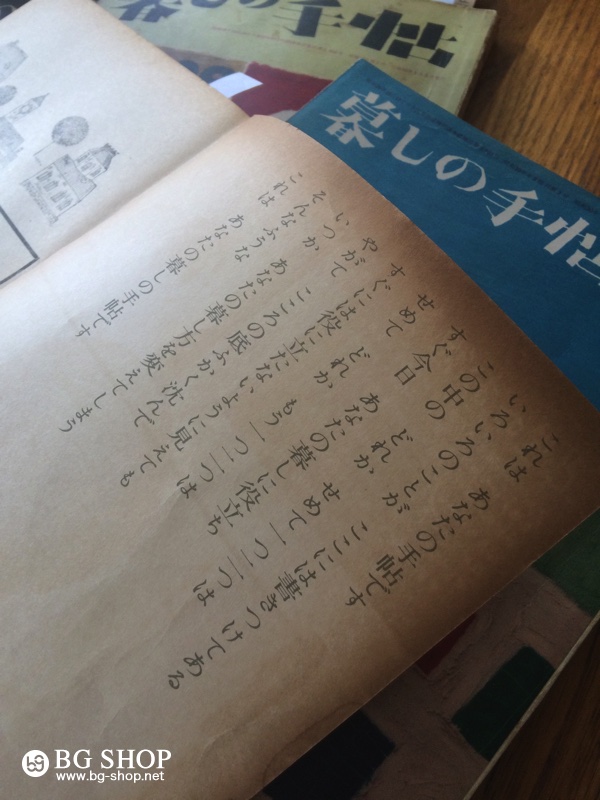 暮しの手帖
暮しの手帖
これは あなたの手帖です
いろいろのことが ここには書きつけてある
この中の どれか 一つ二つは
すぐ今日 あなたの暮しに役立ち
せめて どれか もう一つ二つは
すぐには役に立たないように見えても
やがて こころの底ふかく沈んで
いつか あなたの暮し方を変えてしまう
そんなふうな
これは あなたの暮しの手帖です
BG SHOP
www.bg-shop.net